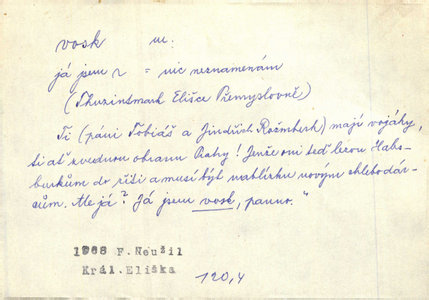 vosk m.
já jsem v = nic neznamenám
(Thurzinsmark Elišce Přemyslovně)
Ti (páni Tobiáš a Jindřich Rožmberk) mají vojáky,
ti ať zvednou obranu Prahy! Jenže oni teď lezou Habs-
burkům do řiti a musí být nablízku novým chlebodár-
cům. Ale já? Já jsem vosk, panno."
1968 F. Neužil
Král. Eliška
120,4